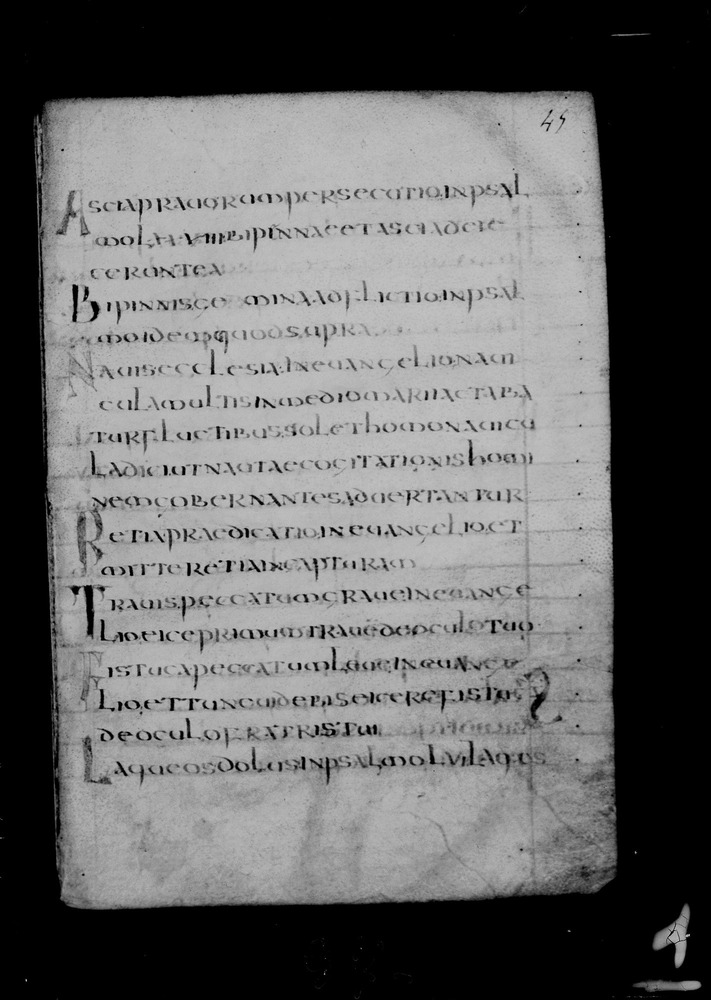 45
ASCIAPRAUORUMPERSECUTIO,INPSAL
MOLXXVIIIIBIPINNAEETASCIADEIE
CERUNTEA
BIPINNISCO MINAADFLICTIO,INPSAL
MOIDEMQUODSUPRA
NAUISECCLESIA.INEUANGELIO,NAUI
CULAMULTISINMEDIOMARIIACTABA
TURFLUCTIBUS,SOLETHOMONAUICU
LADICIUTNAUTAECOGITATIONISHOMI
NEMGOBERNANTESADUERTANTUR
RETIAPRAEDICATIO,INEUANGELIO,ET
MITTERETIAINCAPTURAM
TRAUIS,PECCATUMGRAUE,INEUANGE
LIO,EICEPRIMUMTRAUEDEOCULOTUO
FISTUCAPECCATUMLEUE,INEUANGE
LIO,ETTUNCUIDEBISEICEREFISTU
DEOCULOFRATRISTUI
LAQUEOSDOLUSINPSALMOLVI,LAQUOS